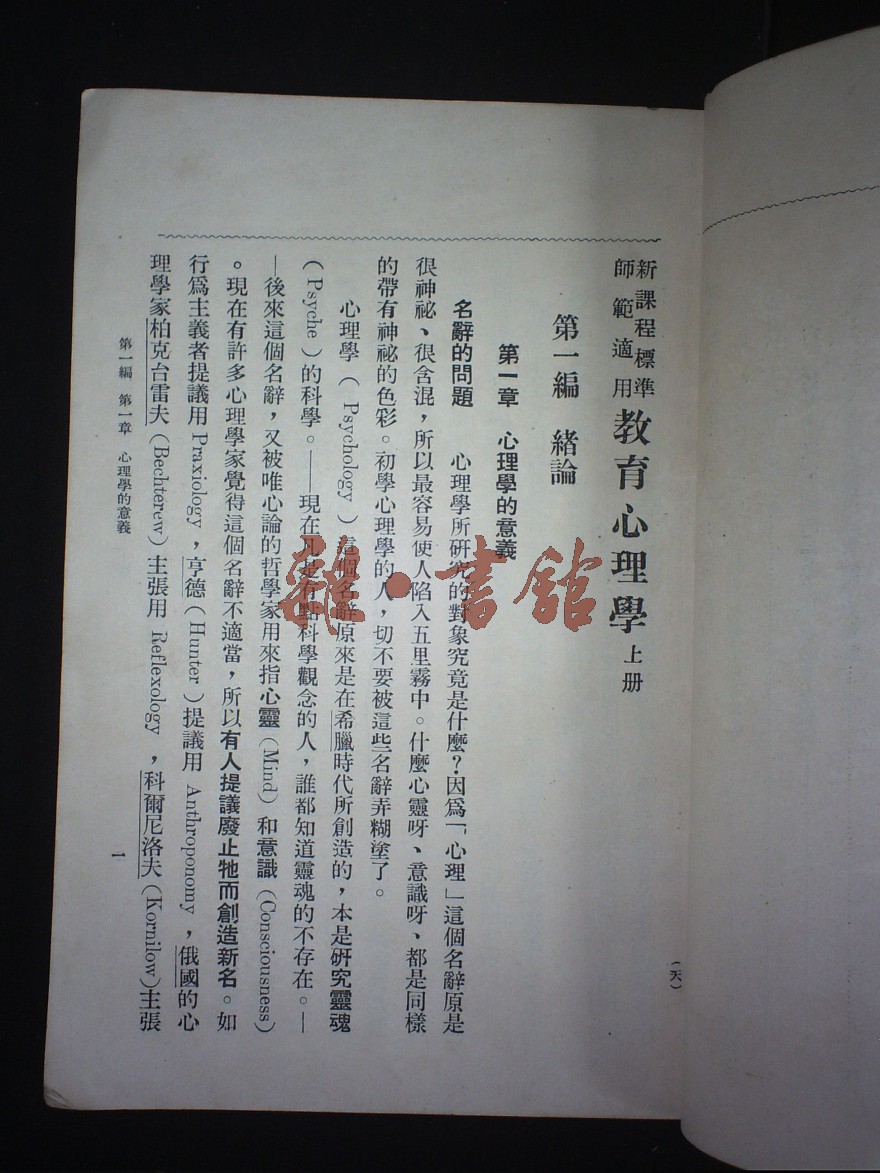 新課程標準
師範適用
教育心理學 上册
第一編 緒論
第一章 心理學的意義
名辭的問題 心理學所研究的對象究竟是什麼？因爲「心理」這個名辭原是
很神祕、很含混，所以最容易使人陷入五里霧中。什麼心靈呀、意識呀、都是同樣
的帶有神祕的色彩。初學心理學的人，切不要被這些名辭弄糊塗了。
心理學（Psychology）這個名辭原來是在希臘時代所創造的，本是研究靈魂
（Psyche）的科學。——現在凡是有點科學觀念的人，誰都知道靈魂的不存在。—
—後來這個名辭，又被唯心論的哲學家用來指心靈（Mind）和意識（Consciousness）
。現在有許多心理學家覺得這個名辭不適當，所以有人提議廢止牠而創造新名。如
行爲主義者提議用 Praxiology，亨德（Hunter）提議用 Anthroponomy，俄國的心
理學家柏克台雷夫（Bechterew）主張用 Reflexology，科爾尼洛夫（Kornilow）主張
第一編 第一章 心理學的意義
一
（天）
雜·書館